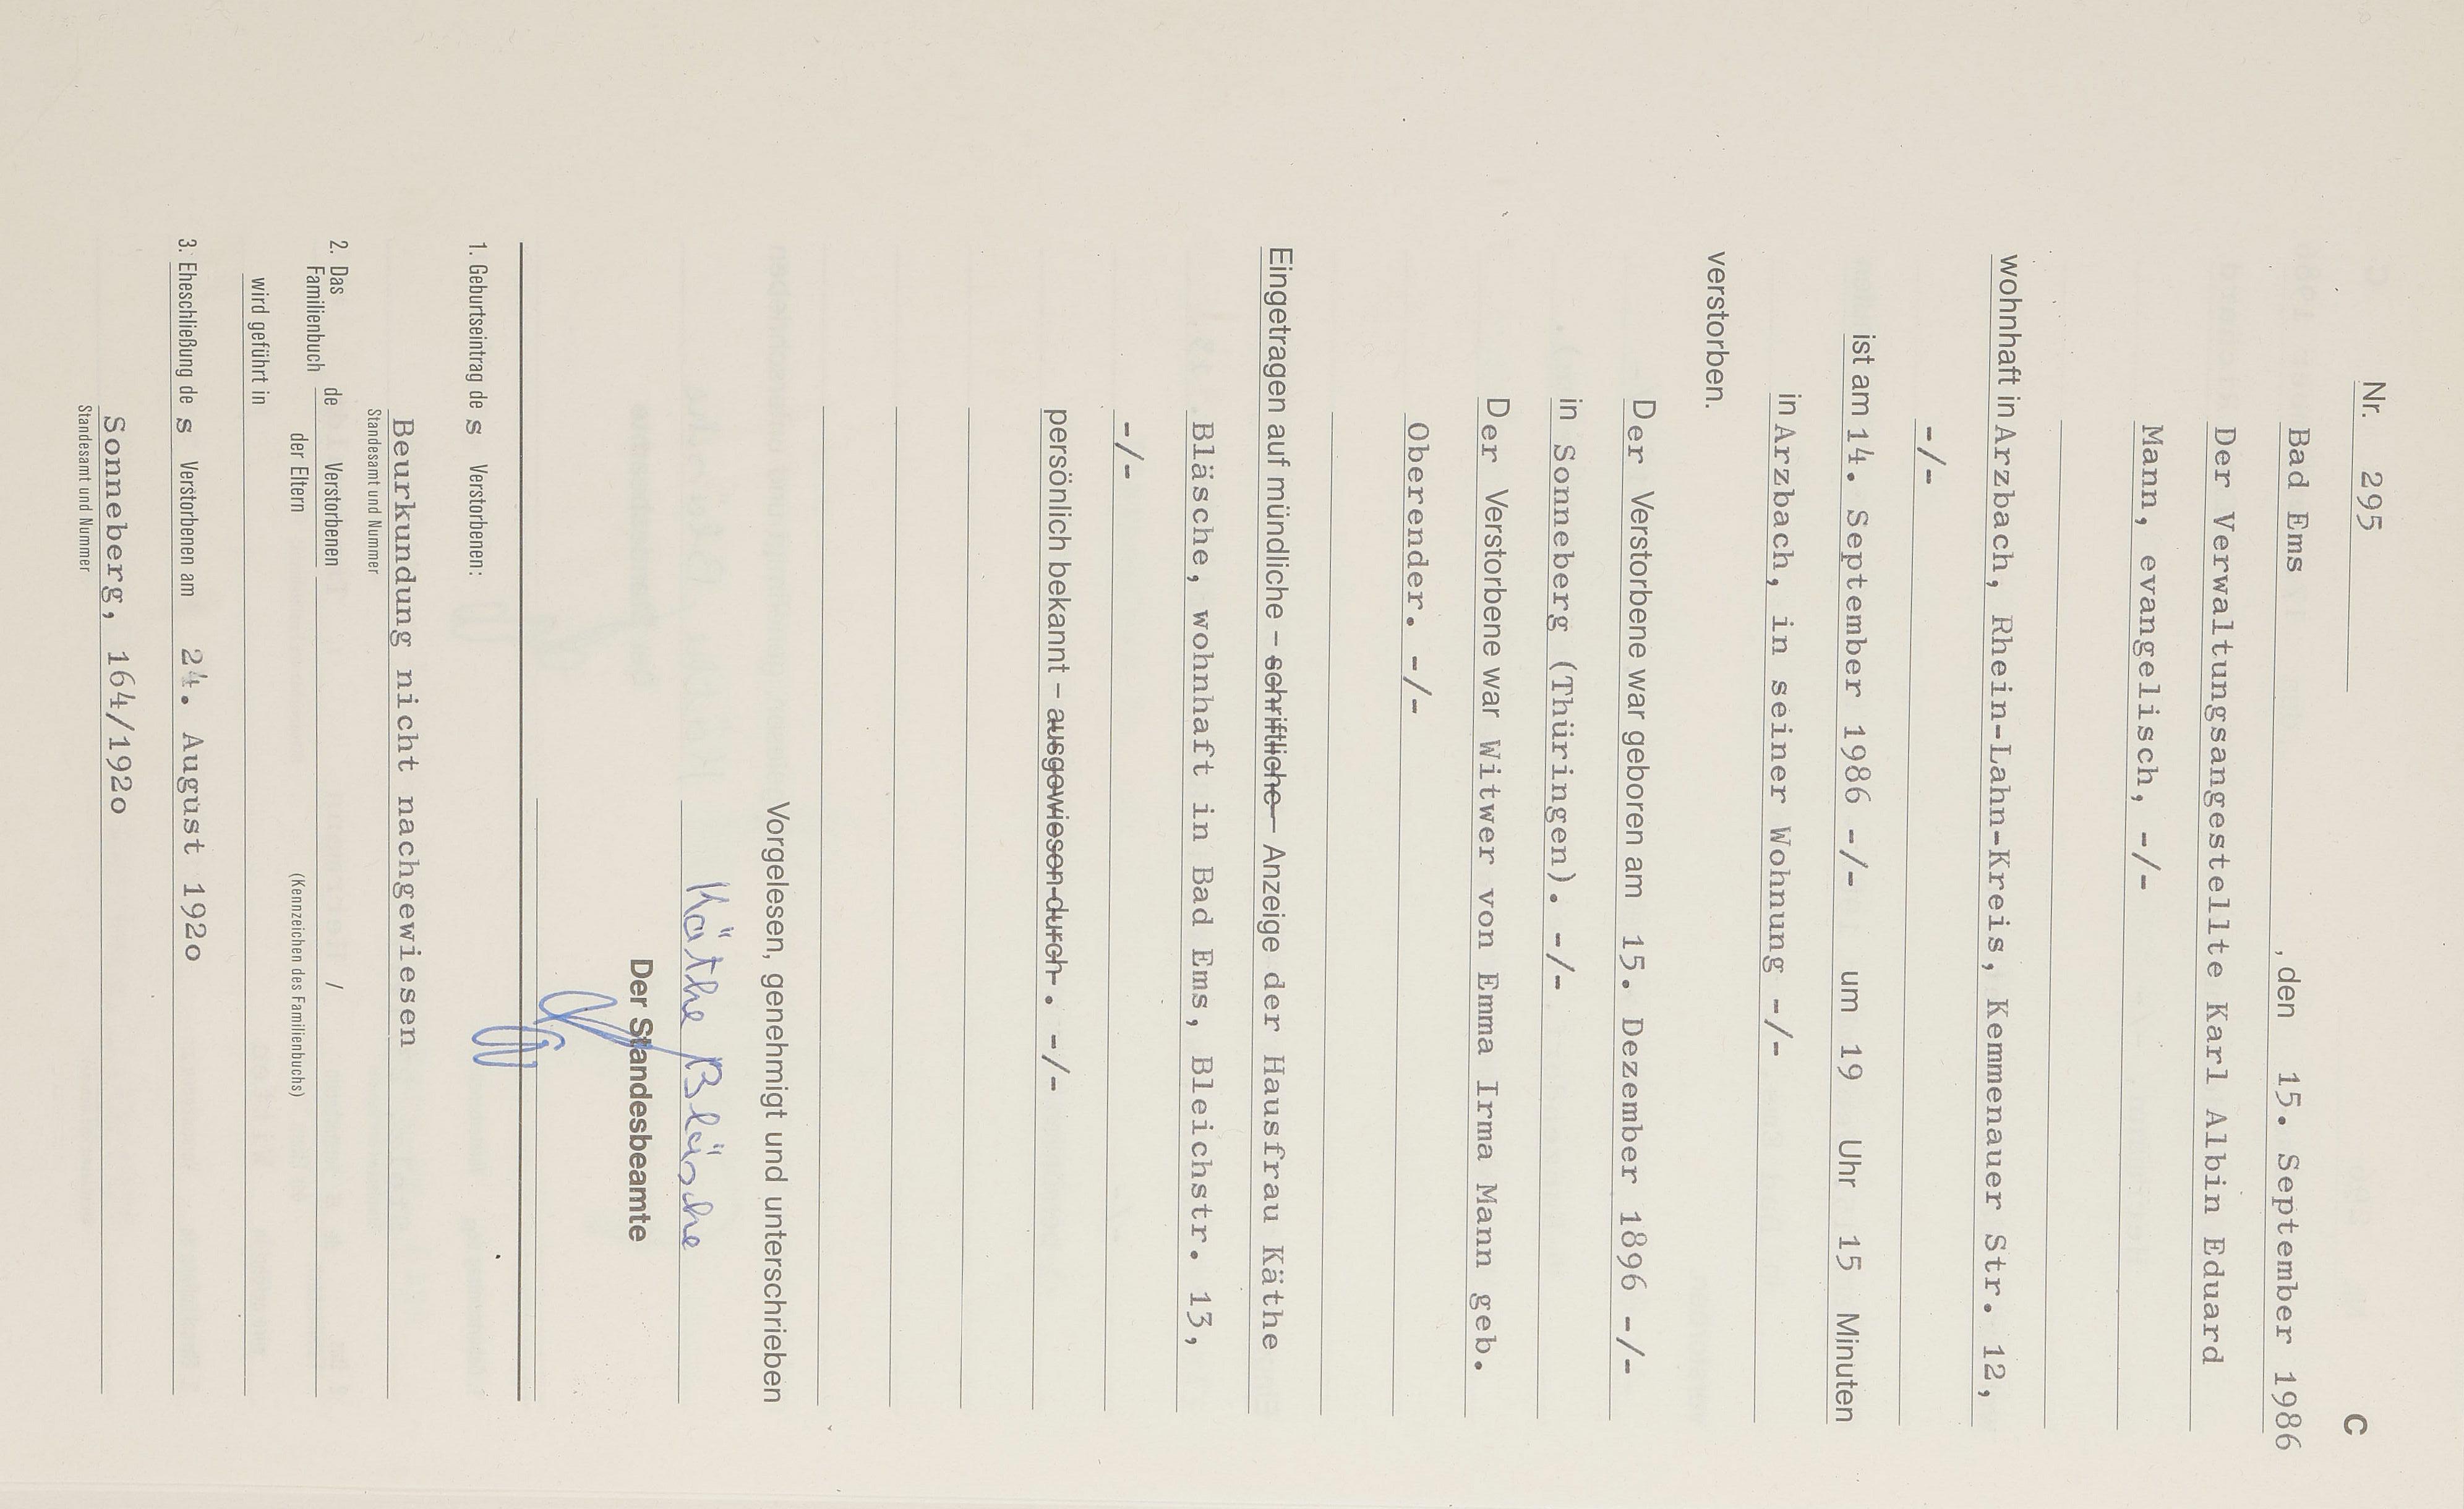 Nr. 295
C
Bad Ems , den 15. September 1986
Der Verwaltungsangestellte Karl Albin Eduard
Mann, evangelisch, -/-
wohnhaft in Arzbach, Rhein-Lahn-Kreis, Kemmenauer Str. 12,
-/-
ist am 14. September 1986 -/- um 19 Uhr 15 Minuten
in Arzbach, in seiner Wohnung -/-
verstorben.
Der Verstorbene war geboren am 15. Dezember 1896 -/-
in Sonneberg (Thüringen). -/-
Der Verstorbene war Witwer von Emma Irma Mann geb.
Oberender. -/-
Eingetragen auf mündliche – schriftliche – Anzeige der Hausfrau Käthe
Bläsche, wohnhaft in Bad Ems, Bleichstr. 13,
-/-
persönlich bekannt – ausgewiesen durch . -/-
Vorgelesen, genehmigt und unterschrieben
Käthe Bläsche
Der Standesbeamte
1. Geburtseintrag des Verstorbenen:
Beurkundung nicht nachgewiesen
Standesamt und Nummer
2. Das Familienbuch de Verstorbenen /
der Eltern (Kennzeichen des Familienbuchs)
wird geführt in
3. Eheschließung des Verstorbenen am 24. August 192o
Sonneberg, 164/192o
Standesamt und Nummer